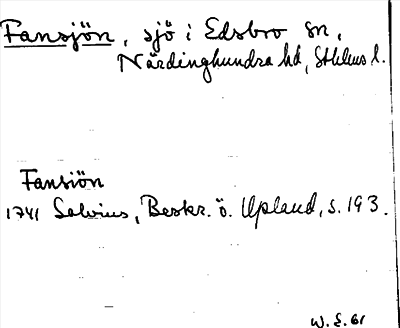 Fansjön, sjö i Edsbro sn,
Närdinghundra hd, Sthlms l.
Fansiön
1741 Salvius, Beskr. ö. Upland, s. 193.
W. E. 61